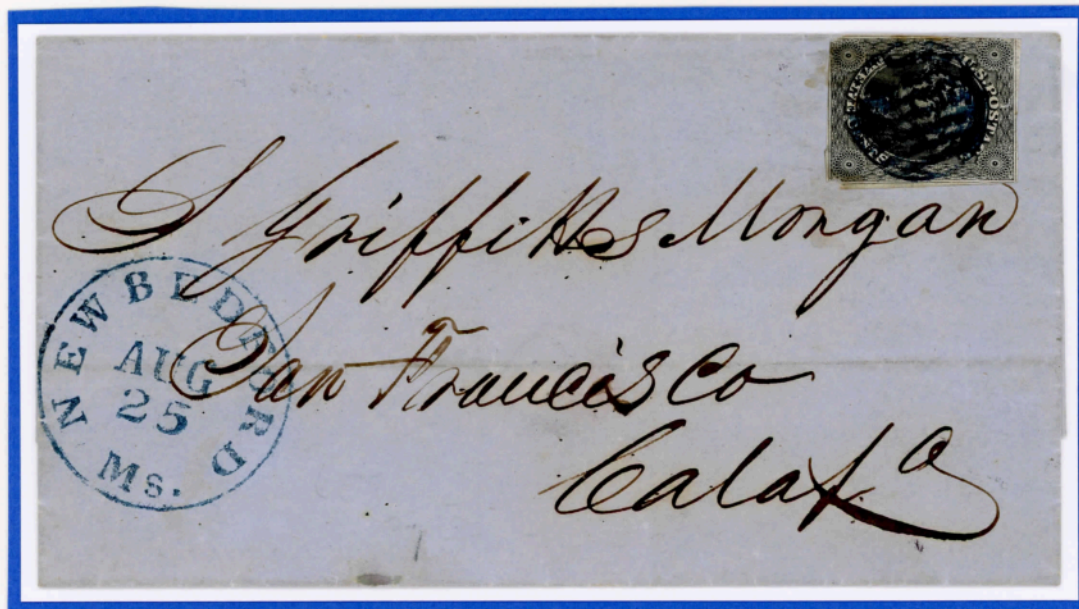 U.S. POSTAGE
S Griffitts Morgan
San Francisco
Calafa
NEW BEDFORD
AUG
25
Ms.